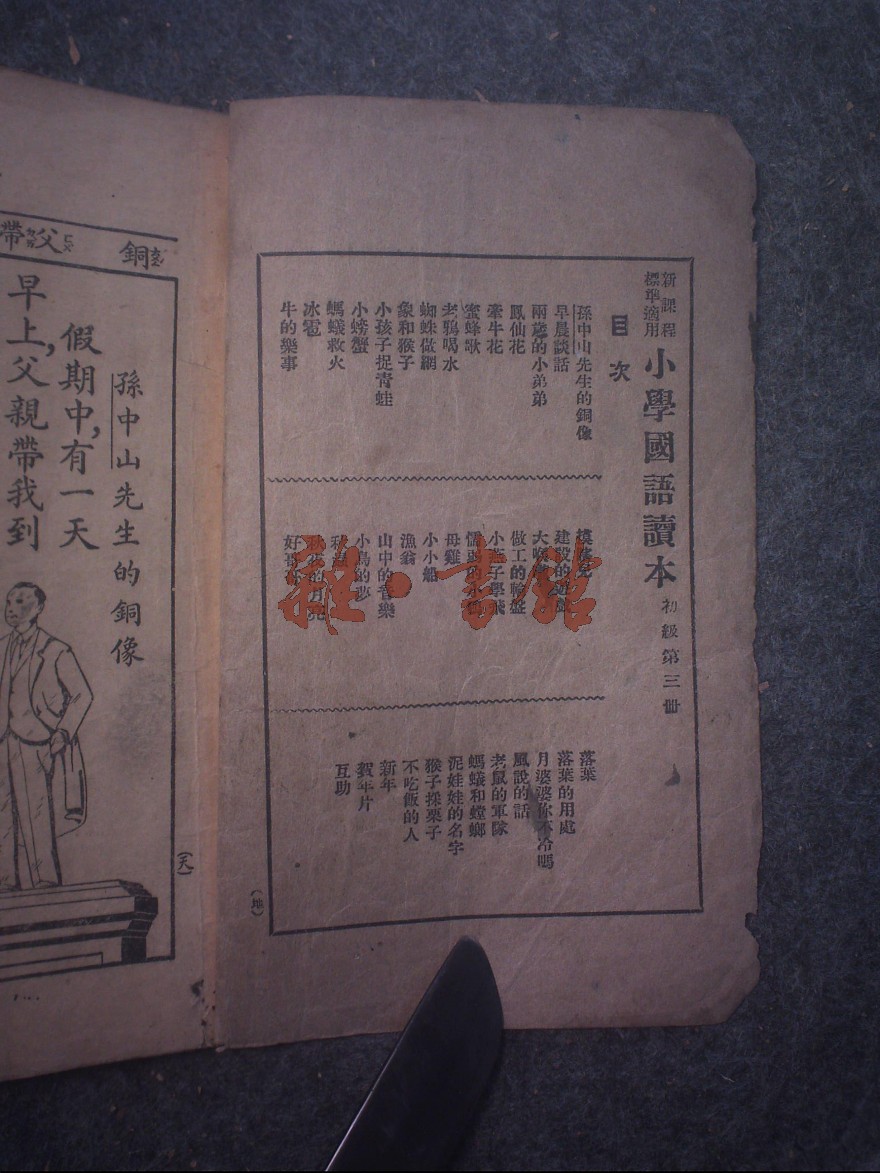 新課程
標準適用
小學國語讀本 初級第三冊
目次
孫中山先生的銅像
早晨談話
兩歲的小弟弟
鳳仙花
牽牛花
蜜蜂歌
老鴉喝水
蜘蛛做網
象和猴子
小孩子捉青蛙
小螃蟹
螞蟻救火
冰雹
牛的樂事
做工的輪盤
小燕子學飛
母雞
小小船
漁翁
山中的音樂
小鳥的夢
落葉
落葉的用處
月婆婆你不冷嗎
風說的話
老鼠的軍隊
螞蟻和螳螂
泥娃娃的名字
猴子採栗子
不吃飯的人
新年
賀年片
互助
(地)
雅·書館
銅
父
帶
孫中山先生的銅像
假期中,有一天
早上,父親帶我到
(天)